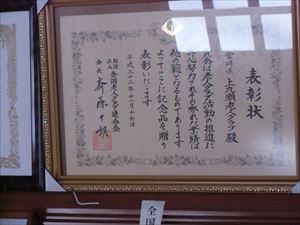 表彰状
宮崎県 上九瀬老人クラブ殿
貴会は老人クラブ活動の推進に
努力
他の範とするものであります
よってここに記念品を贈り
表彰いたします
平成二十二年十一月十七日
財団法人 全国老人クラブ連合会
会長 斎藤十朗
全国